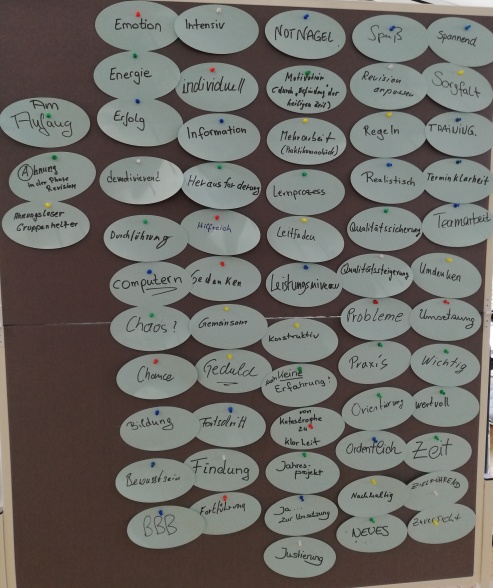 Am
Anfang
Ahnung
in der Phase
Revision
Ahnungsloser
Gruppenhelfer
Emotion
Energie
Erfolg
demotivierend
Durchführung
computern
Chaos?
Chance
Bildung
Bewusstsein
BBB
Intensiv
individuell
Information
Herausforderung
Hilfreich
Gedanken
Gemeinsam
Geduld
Fortschritt
Findung
Fortführung
NOTNAGEL
Motivation
Mehrarbeit
Lernprozess
Leitfaden
Leistungsniveau
Konstruktiv
keine
Erfahrung!
von
Katastrophe
zu
Klarheit
Jahres-
projekt
Ja...
zur Umsetzung
Justierung
Spaß
Revision
anpassen
Regeln
Realistisch
Qualitätssicherung
Qualitätssteigerung
Probleme
Praxis
Orientierung
Ordentlich
Nachhaltig
NEUES
Spannend
Sorgfalt
TRAINING.
Terminklarheit
Teamarbeit
Umdenken
Umsetzung
Wichtig
wertvoll
Zeit
ZIELFÜHREND
Zuversicht